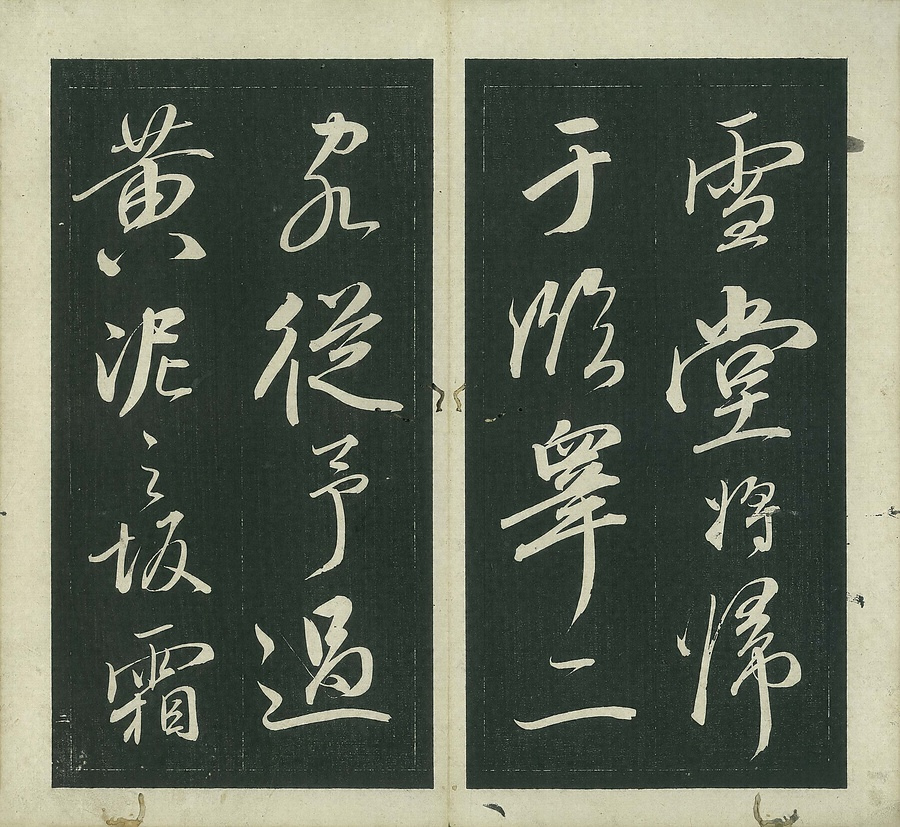 雪堂將歸
于臨皋二
客從予過
黃泥之坂霜